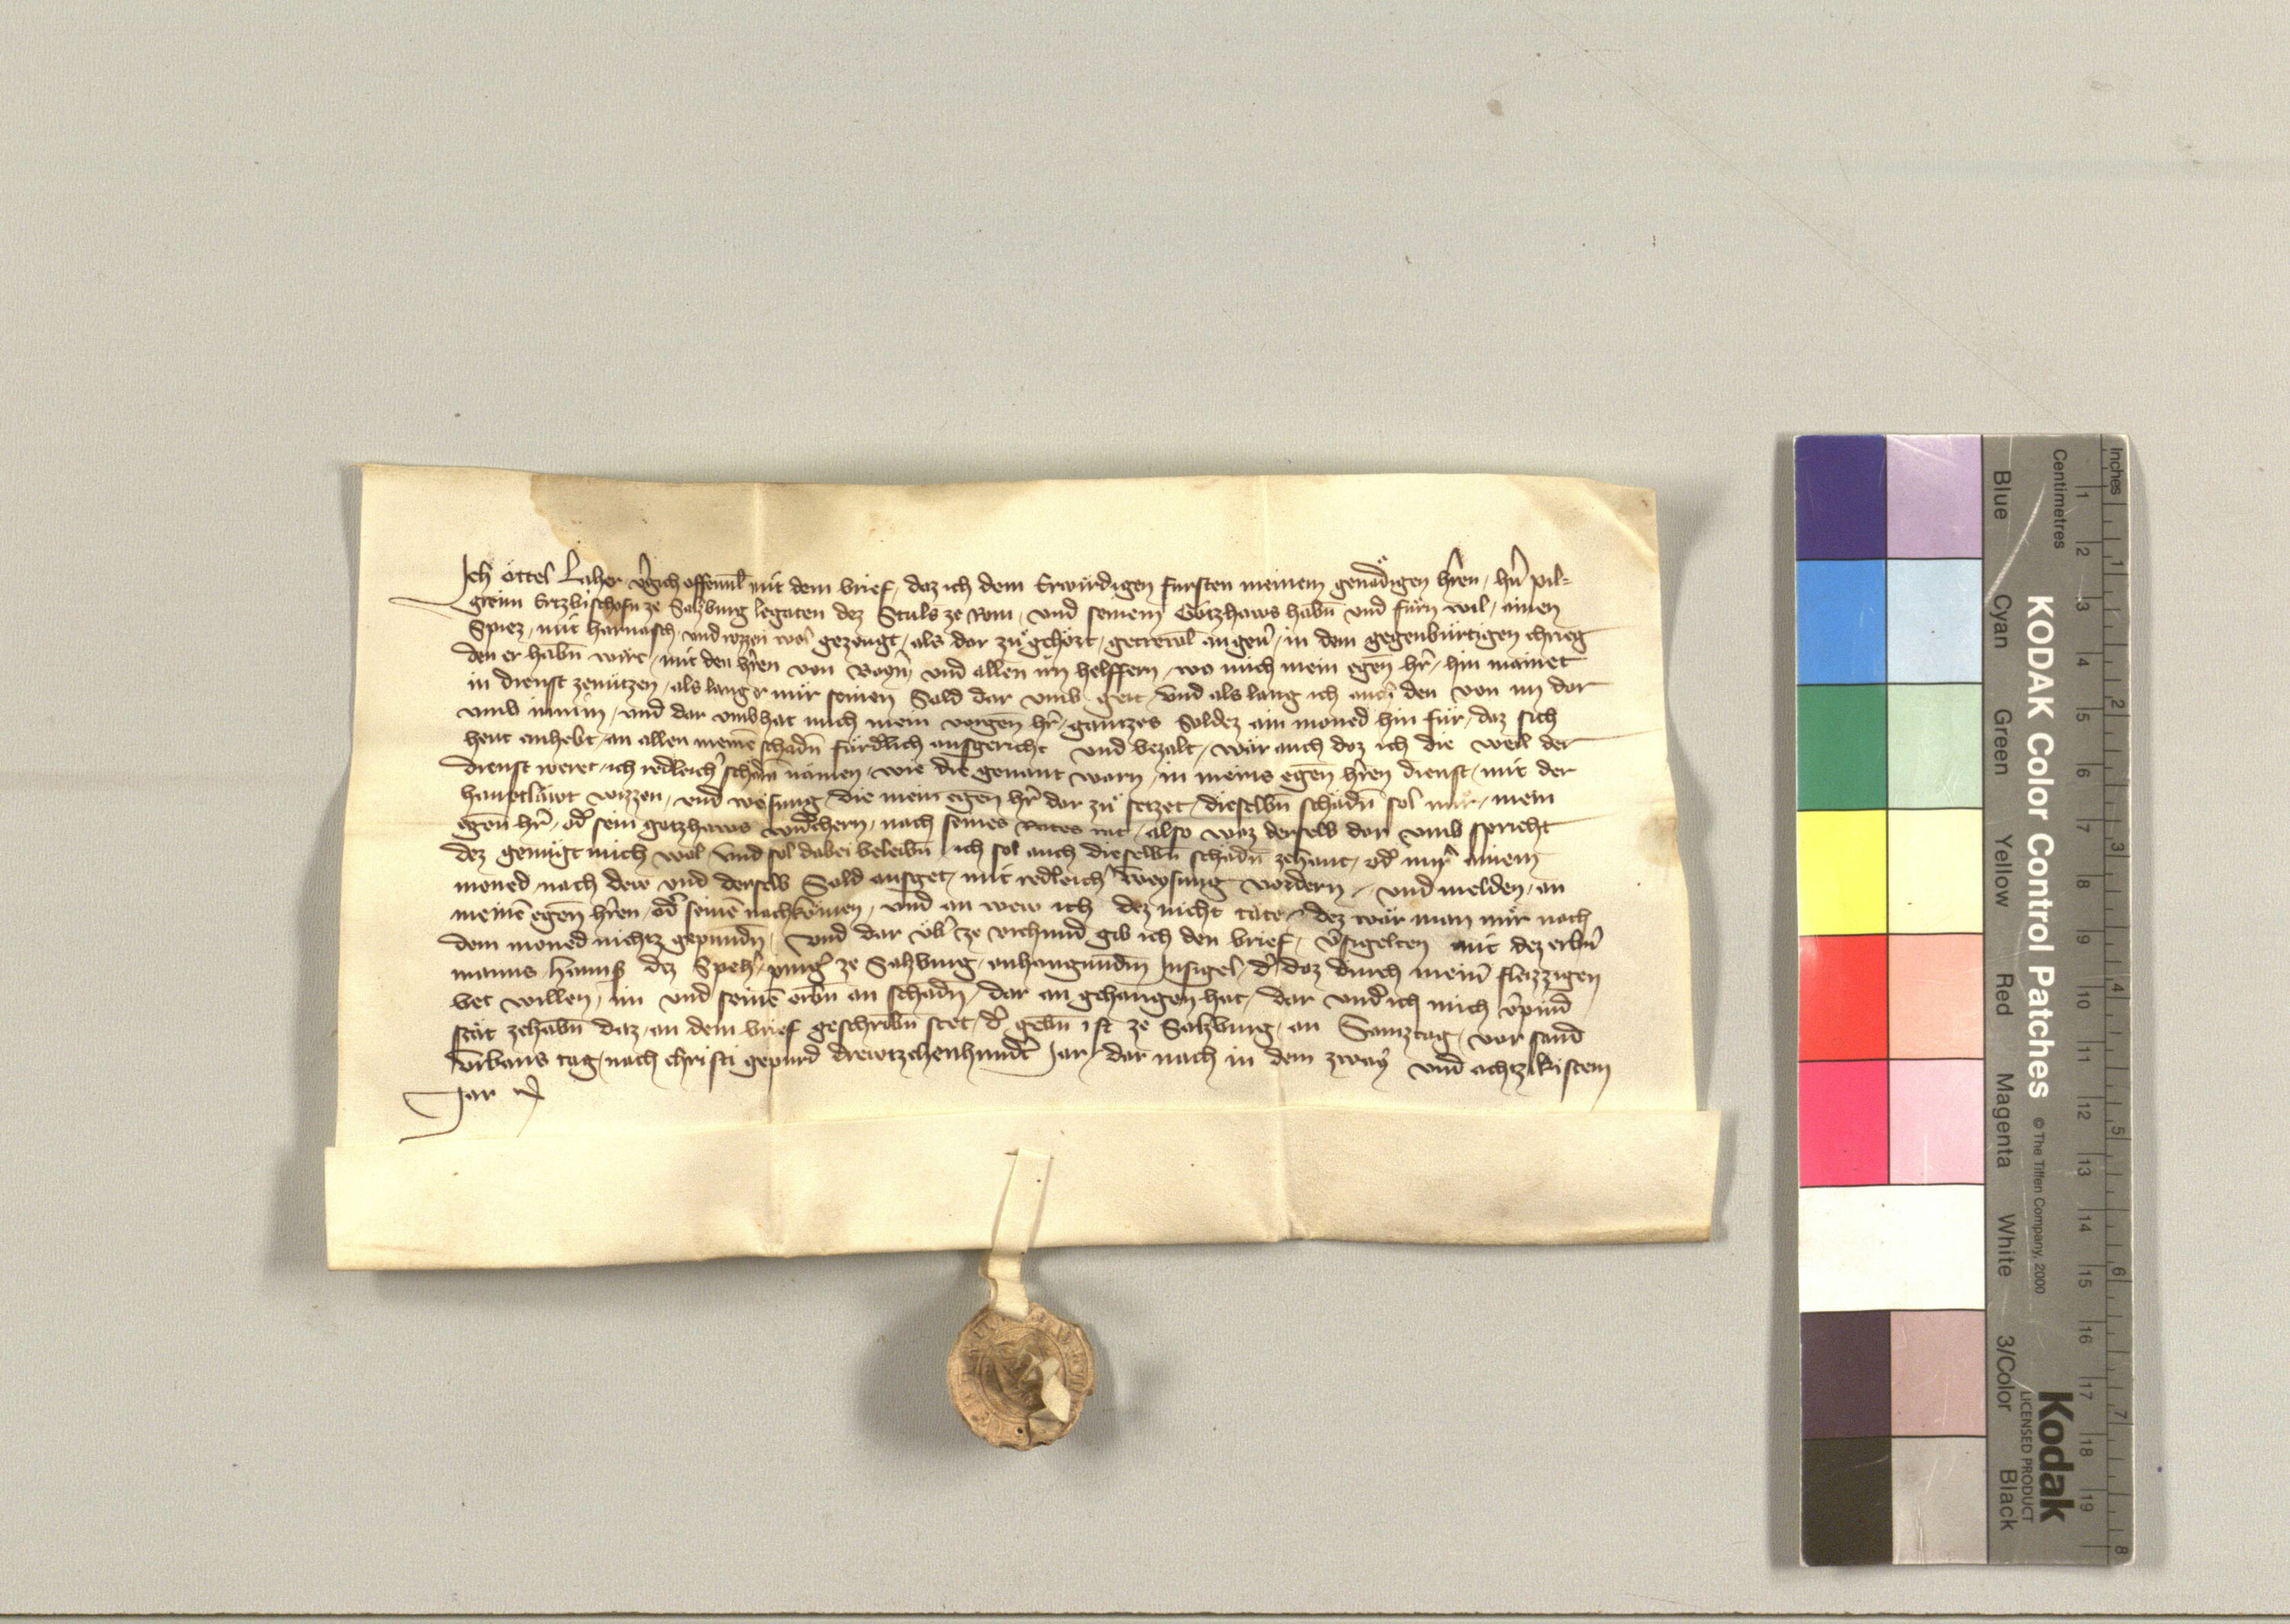 Ich öttel Laher v̂gich offennl̄ mit dem brief, daz ich dem Erwirdigen fursten meinem genaͤdigen hr̂en, hn̂ pil=
greim Ertzbischofn ze Saltzburg legaten dez Stuls ze Rom, und seinem Gotzhaws habn̄ und fürn wil, ainen
Spiez, mit harnasch, und rozzen wol gezeugt, als dar zuͤ gehört, in dem gegenbürtigen chrieg
den er habn̄ wirt, mit den hr̂en von und allen irn helffern, wo mich mein egen̄ hr̂, hin mainet
in dienst zenützen, als lang er mir seinen Sold dar umb geit, und als lang ich auch den von im dar
umb nimm, und dar umb hat mich mein vorgen̄ hr̂, gantzes Soldez ain moned hin für, daz sich
heut anhebt, an allen meinē schadn̄ fürdlich ausgericht und bezalt, waͤr auch daz ich die weil der
dienst weret, ich redleicĥ schadn̄ naͤmen, wie die genant warn, in meins egen̄ hr̂en dienst, mit der
hauptlaͤwt wizzen, und weisung, die mein egen̄ hr̂ dar zuͤ setzet, dieselbn̄ schaͤdn̄ sol mir, mein
egen̄ hr̂, od̂ sein gotzhaws wid̂chern, nach seines Rates rat, also waz derselb dar umb spricht
dez genügt mich wol und sol dabei beleibn̄ ich sol auch dieselbn̄ schaͤdn̄ zehant, od̂ inn̂ ainem
moned, nach dem und derselb Sold ausget, mit redleicĥ weysung vordern, und melden, an
meinē egen̄ hr̂en, od̂ seinē nachkomen, und an wew ich dez nicht taͤte, dez waͤr man mir nach
dem moned nichtz gepundn̄, und dar üb̂ ze vrchund gib ich den brief, v̂sigelten mit dez erbn̂
manns hanns dez Speĥ, purĝ ze Salzburg, anhangundm̄ Insigel, d̂ daz durch meinr̂ fleizzigen
bet willen, im und seinē erbn̄ an schadn̄, dar an gehangen hat, dar und̂ ich mich v̂pind
staͤt zehabn̄ daz, an dem brief geschribn̄ stet, d̂ gebn̄ ist ze Salzburg, an Samztag, vor sand
Vrbans tag, nach christi gepurd drewtzehenhund̂t Jar, dar nach in dem zway und achtzikistem
Jar
Inches
Centimetres
1 2 3 4 5 6 7 8 9 10 11 12 13 14 15 16 17 18 19
1 2 3 4 5 6 7 8
KODAK Color Control Patches © The Tiffen Company, 2000
Kodak
LICENSED PRODUCT
Blue Cyan Green Yellow Red Magenta White 3/Color Black